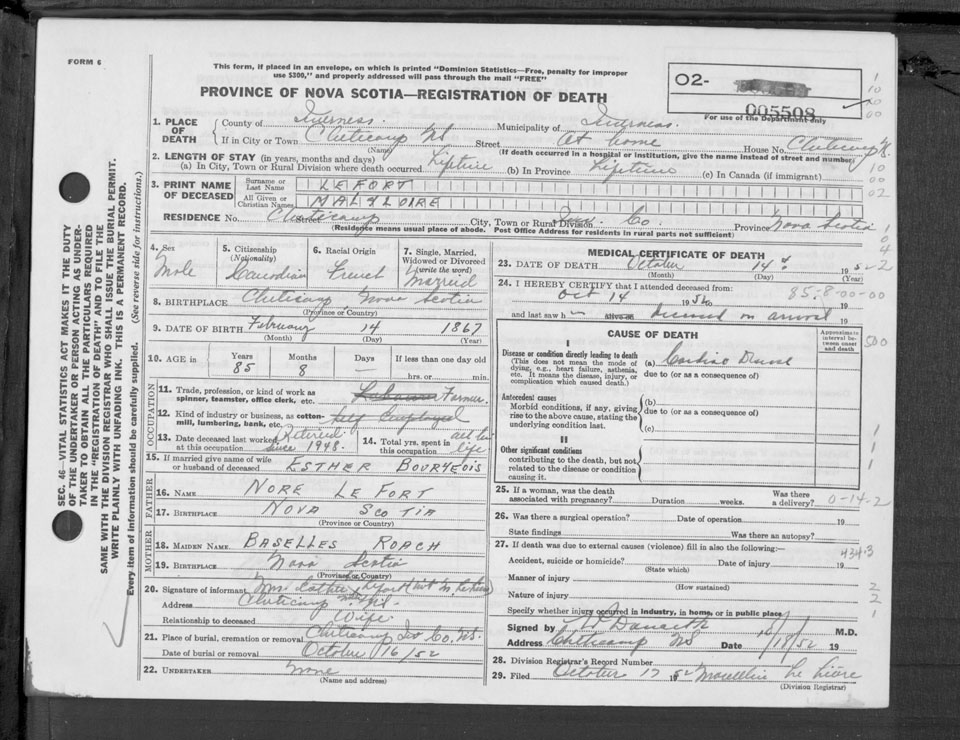 FORM 6
This form, if placed in an envelope, on which is printed "Dominion Statistics—Free, penalty for improper
use $300," and properly addressed will pass through the mail "FREE"
PROVINCE OF NOVA SCOTIA—REGISTRATION OF DEATH
O2-
005508
For use of the Department only
1. PLACE OF DEATH
County of Inverness. Municipality of Inverness.
If in City or Town Cheticamp NS Street At home House No. Cheticamp N.S.
(Name) (If death occurred in a hospital or institution, give the name instead of street and number)
2. LENGTH OF STAY (in years, months and days)
(a) In City, Town or Rural Division where death occurred Liftime (b) In Province Liftime (c) In Canada (if immigrant)
3. PRINT NAME OF DECEASED
Surname or Last Name LEFORT
All Given or Christian Names
RESIDENCE No. Cheticamp Street City, Town or Rural Division Inv. Co. Province Nova Scotia
(Residence means usual place of abode. Post Office Address for residents in rural parts not sufficient)
4. Sex Male
5. Citizenship (Nationality) Canadian
6. Racial Origin French
7. Single, Married, Widowed or Divorced (write the word) Married
8. BIRTHPLACE Cheticamp Nova Scotia
(Province or Country)
9. DATE OF BIRTH February 14 1867
(Month) (Day) (Year)
10. AGE in Years 85 Months 8 Days — If less than one day old
hrs. or min.
OCCUPATION
11. Trade, profession, or kind of work as spinner, teamster, office clerk, etc. Farmer.
12. Kind of industry or business, as cotton-mill, lumbering, bank, etc. Self Employed
13. Date deceased last worked at this occupation Retired since 1948.
14. Total yrs. spent in this occupation all his life
15. If married give name of wife or husband of deceased ESTHER BOURGEOIS
FATHER
16. NAME NORE LE FORT
17. BIRTHPLACE NOVA SCOTIA
(Province or Country)
MOTHER
18. MAIDEN NAME BASELLES ROACH
19. BIRTHPLACE Nova Scotia
(Province or Country)
20. Signature of informant Mrs. Esther Lefort
Address Cheticamp
Relationship to deceased Wife.
21. Place of burial, cremation or removal Cheticamp Inv Co, NS.
Date of burial or removal October 16/52
22. UNDERTAKER None
(Name and address)
MEDICAL CERTIFICATE OF DEATH
23. DATE OF DEATH October 14th 1952
(Month) (Day) (Year)
24. I HEREBY CERTIFY that I attended deceased from:
Oct 14 19 52 to 19
85-8-00-00
and last saw h alive on deceased on arrival 19
CAUSE OF DEATH
Approximate interval between onset and death
I
Disease or condition directly leading to death
(This does not mean the mode of dying, e.g., heart failure, asthenia, etc. It means the disease, injury, or complication which caused death.)
(a) Cardiac Disease
due to (or as a consequence of)
Antecedent causes
Morbid conditions, if any, giving rise to the above cause, stating the underlying condition last.
(b)
due to (or as a consequence of)
(c)
II
Other significant conditions
contributing to the death, but not related to the disease or condition causing it.
25. If a woman, was the death associated with pregnancy? Duration weeks. Was there a delivery? 0-14-2
26. Was there a surgical operation? Date of operation 19
State findings Was there an autopsy?
27. If death was due to external causes (violence) fill in also the following:— 434.3
Accident, suicide or homicide? Date of injury 19
(State which)
Manner of injury
(How sustained)
Nature of injury
Specify whether injury occurred in industry, in home, or in public place
Signed by M.D.
Address Cheticamp NS Date 19
28. Division Registrar's Record Number
29. Filed October 17 1952
(Division Registrar)
SEC. 46—VITAL STATISTICS ACT MAKES IT THE DUTY
OF THE UNDERTAKER OR PERSON ACTING AS UNDER-
TAKER TO OBTAIN ALL THE PARTICULARS REQUIRED
IN THE "REGISTRATION OF DEATH" AND TO FILE THE
SAME WITH THE DIVISION REGISTRAR WHO SHALL ISSUE THE BURIAL PERMIT.
WRITE PLAINLY WITH UNFADING INK. THIS IS A PERMANENT RECORD.
Every item of information should be carefully supplied. (See reverse side for instructions.)